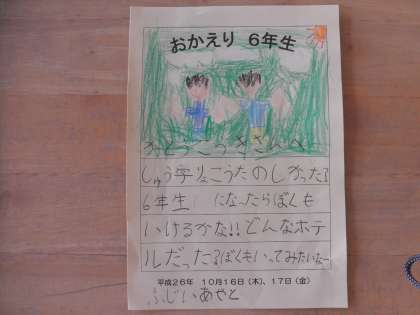 おかえり 6年生
かとうこうきさんへ
しゅう学りょこうたのしかった？
6年生になったらぼくも
いけるかな!!どんなホテ
ルだった？ぼくもいってみたいなー
平成26年 10月16日(木)、17日(金)
ふじいあやと